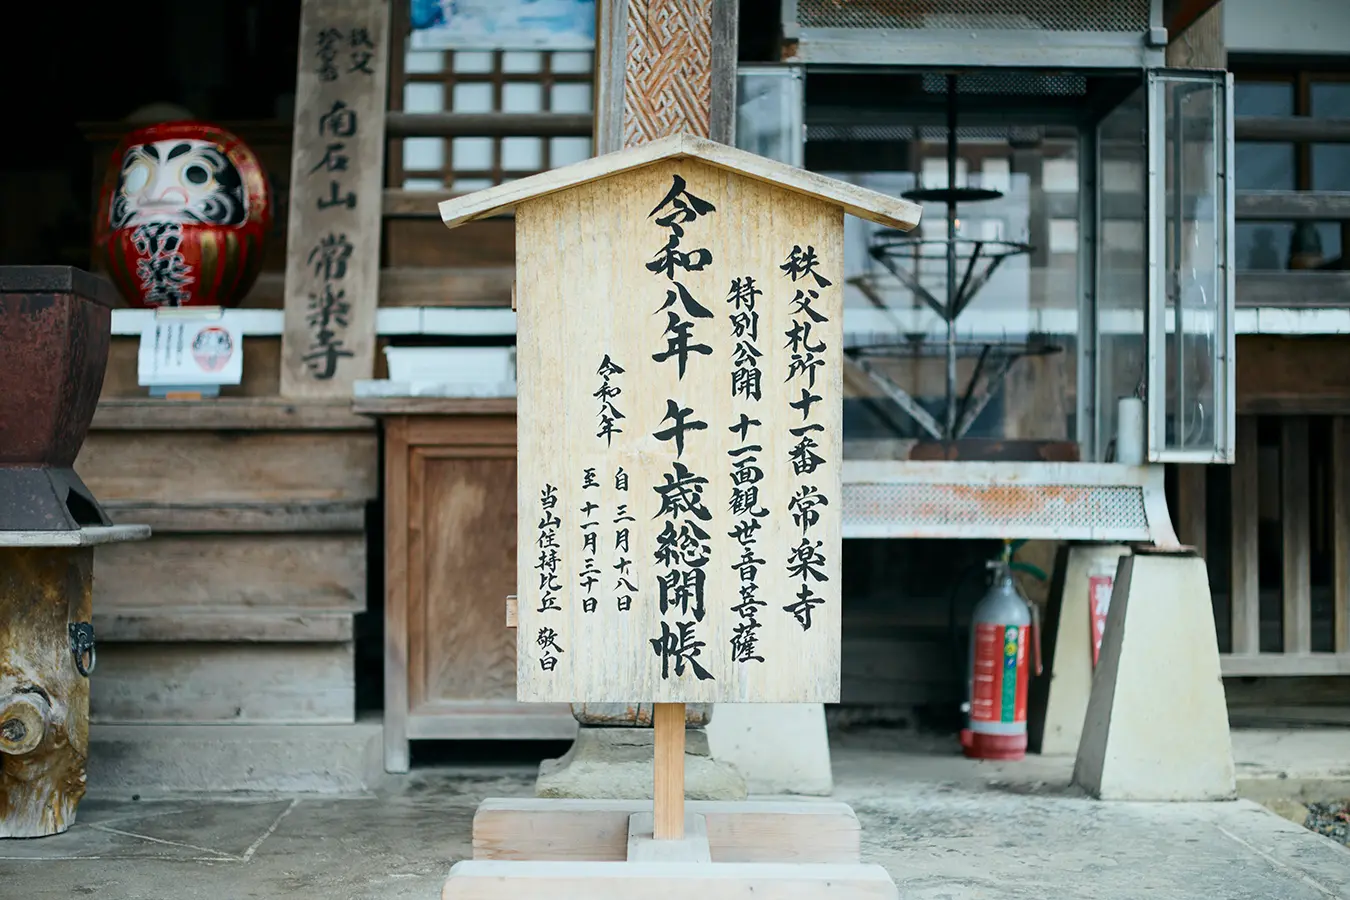 秩父札所十一番 常楽寺
特別公開 十一面観世音菩薩
令和八年 午歳総開帳
令和八年
自 三月十八日
至 十一月三十日
当山住持比丘 敬白
秩父
南石山 常楽寺
常楽寺